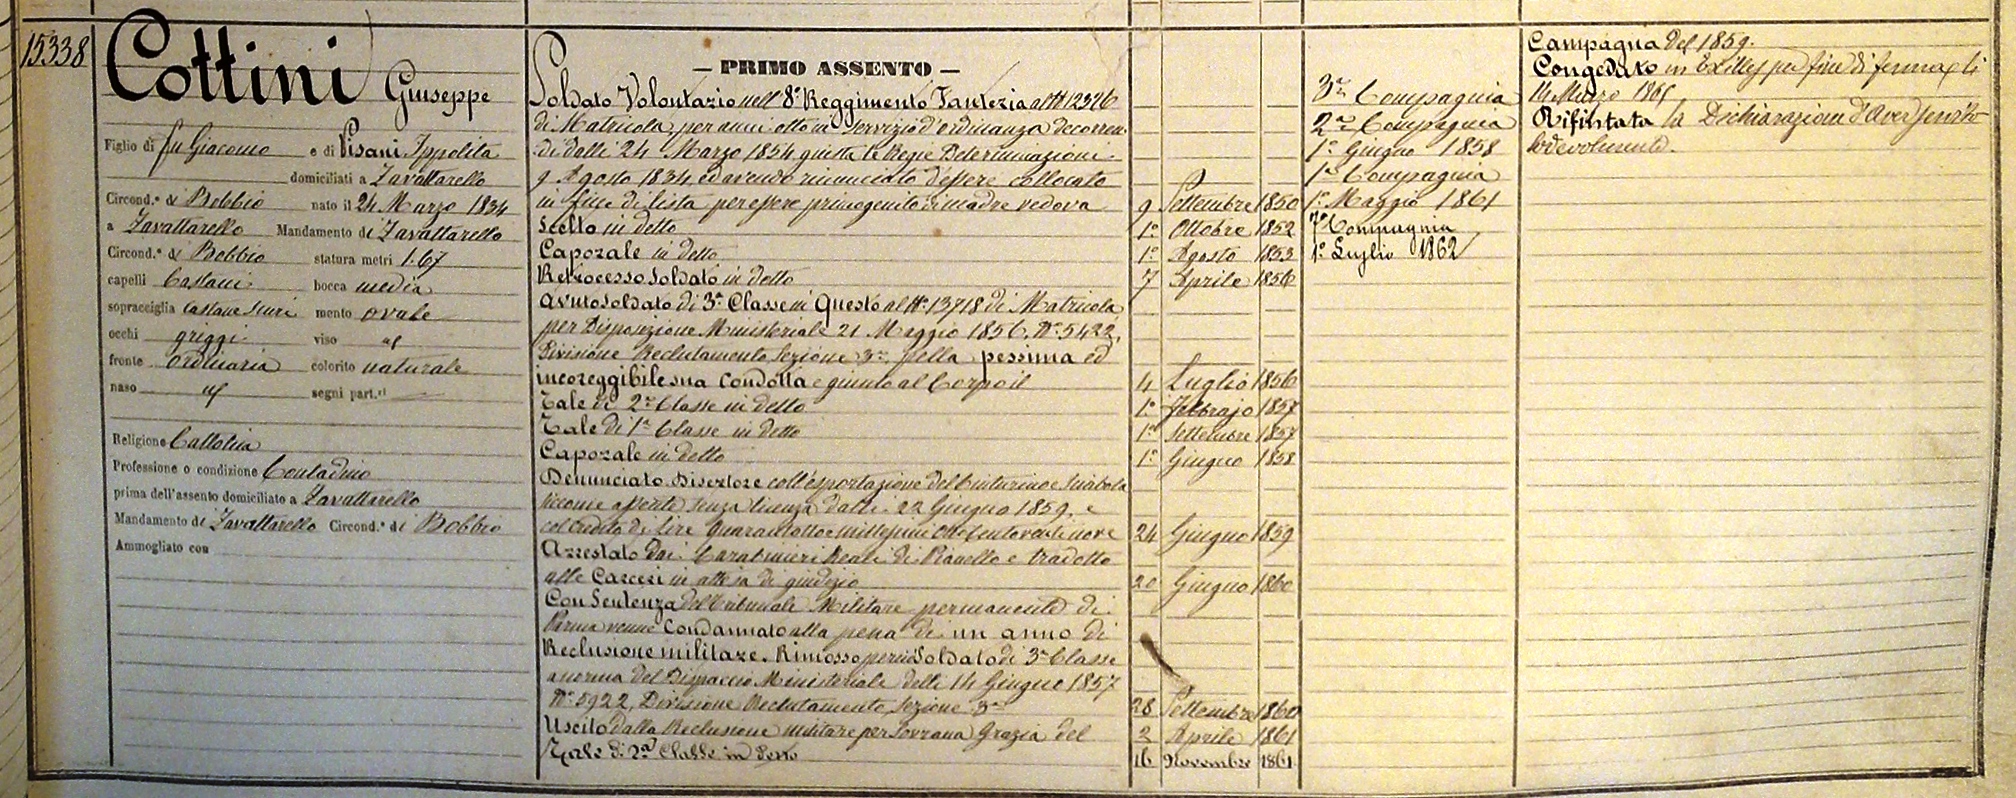 15338
Cottini Giuseppe
Figlio di fu Giacomo e di Pisani Ippolita
domiciliati a Zavattarello
Circond.º di Bobbio nato il 24 Marzo 1834
a Zavattarello Mandamento di Zavattarello
Circond.º di Bobbio statura metri 1.67
capelli Castani bocca media
sopracciglia castane scuri mento ovale
occhi griggi viso id
fronte ordinaria colorito naturale
naso id segni part.ri
Religione Cattolica
Professione o condizione Contadino
prima dell'assento domiciliato a Zavattarello
Mandamento di Zavattarello Circond.º di Bobbio
Ammogliato con
— PRIMO ASSENTO —
Soldato Volontario nell' 8º Reggimento Fanteria al Nº 12326
di Matricola, per anni otto in servizio d'ordinanza decorren-
-di dalli 24 Marzo 1854 giusta le Regie Determinazioni
9 Agosto 1834, ed avendo rinunciato d'essere collocato
in fine di lista per essere primogenito di madre vedova 9 Settembre 1850
Scelto in detto 1º Ottobre 1852
Caporale in detto 1º Agosto 1853
Retrocesso Soldato in detto 7 Aprile 1856
Avuto Soldato di 3ª Classe in Questo al Nº 13718 di Matricola
per Disposizione Ministeriale 21 Maggio 1856, Nº 5422,
Divisione Reclutamento Sezione 3ª, pella pessima ed
incoreggibile sua condotta e giunto al Corpo il 4 Luglio 1856
Tale di 2ª Classe in detto 1º Febbrajo 1857
Tale di 1ª Classe in detto 1º Settembre 1857
Caporale in detto 1º Giugno 1858
Denunciato Disertore coll'esportazione del Centurino e Sciabola
siccome assente senza licenza dalli 22 Giugno 1859, e
col Credito di Lire Quarantotto e millesimi Ottocentoventinove 24 Giugno 1859
Arrestato dai Carabinieri Reali di Pianello e tradotto
alle Carceri in attesa di giudizio 20 Giugno 1860
Con Sentenza del Tribunale Militare permanente di
Parma venne Condannato alla pena di un anno di
Reclusione militare. Rimosso perciò Soldato di 3ª Classe
a norma del Dispaccio Ministeriale delli 14 Giugno 1857
Nº 5922, Divisione Reclutamento, Sezione 3ª 28 Settembre 1860
Uscito dalla Reclusione militare per Sovrana Grazia del 2 Aprile 1861
Tale di 2ª Classe in detto 16 Novembre 1861
3ª Compagnia
2ª Compagnia
1º Giugno 1858
1ª Compagnia
1º Maggio 1861
7ª Compagnia
1º Luglio 1862
Campagna del 1859.
Congedato in Exilles per fine di ferma li
14 Marzo 1865
Rifiutata la Dichiarazione d'Aver servito
lodevolmente.